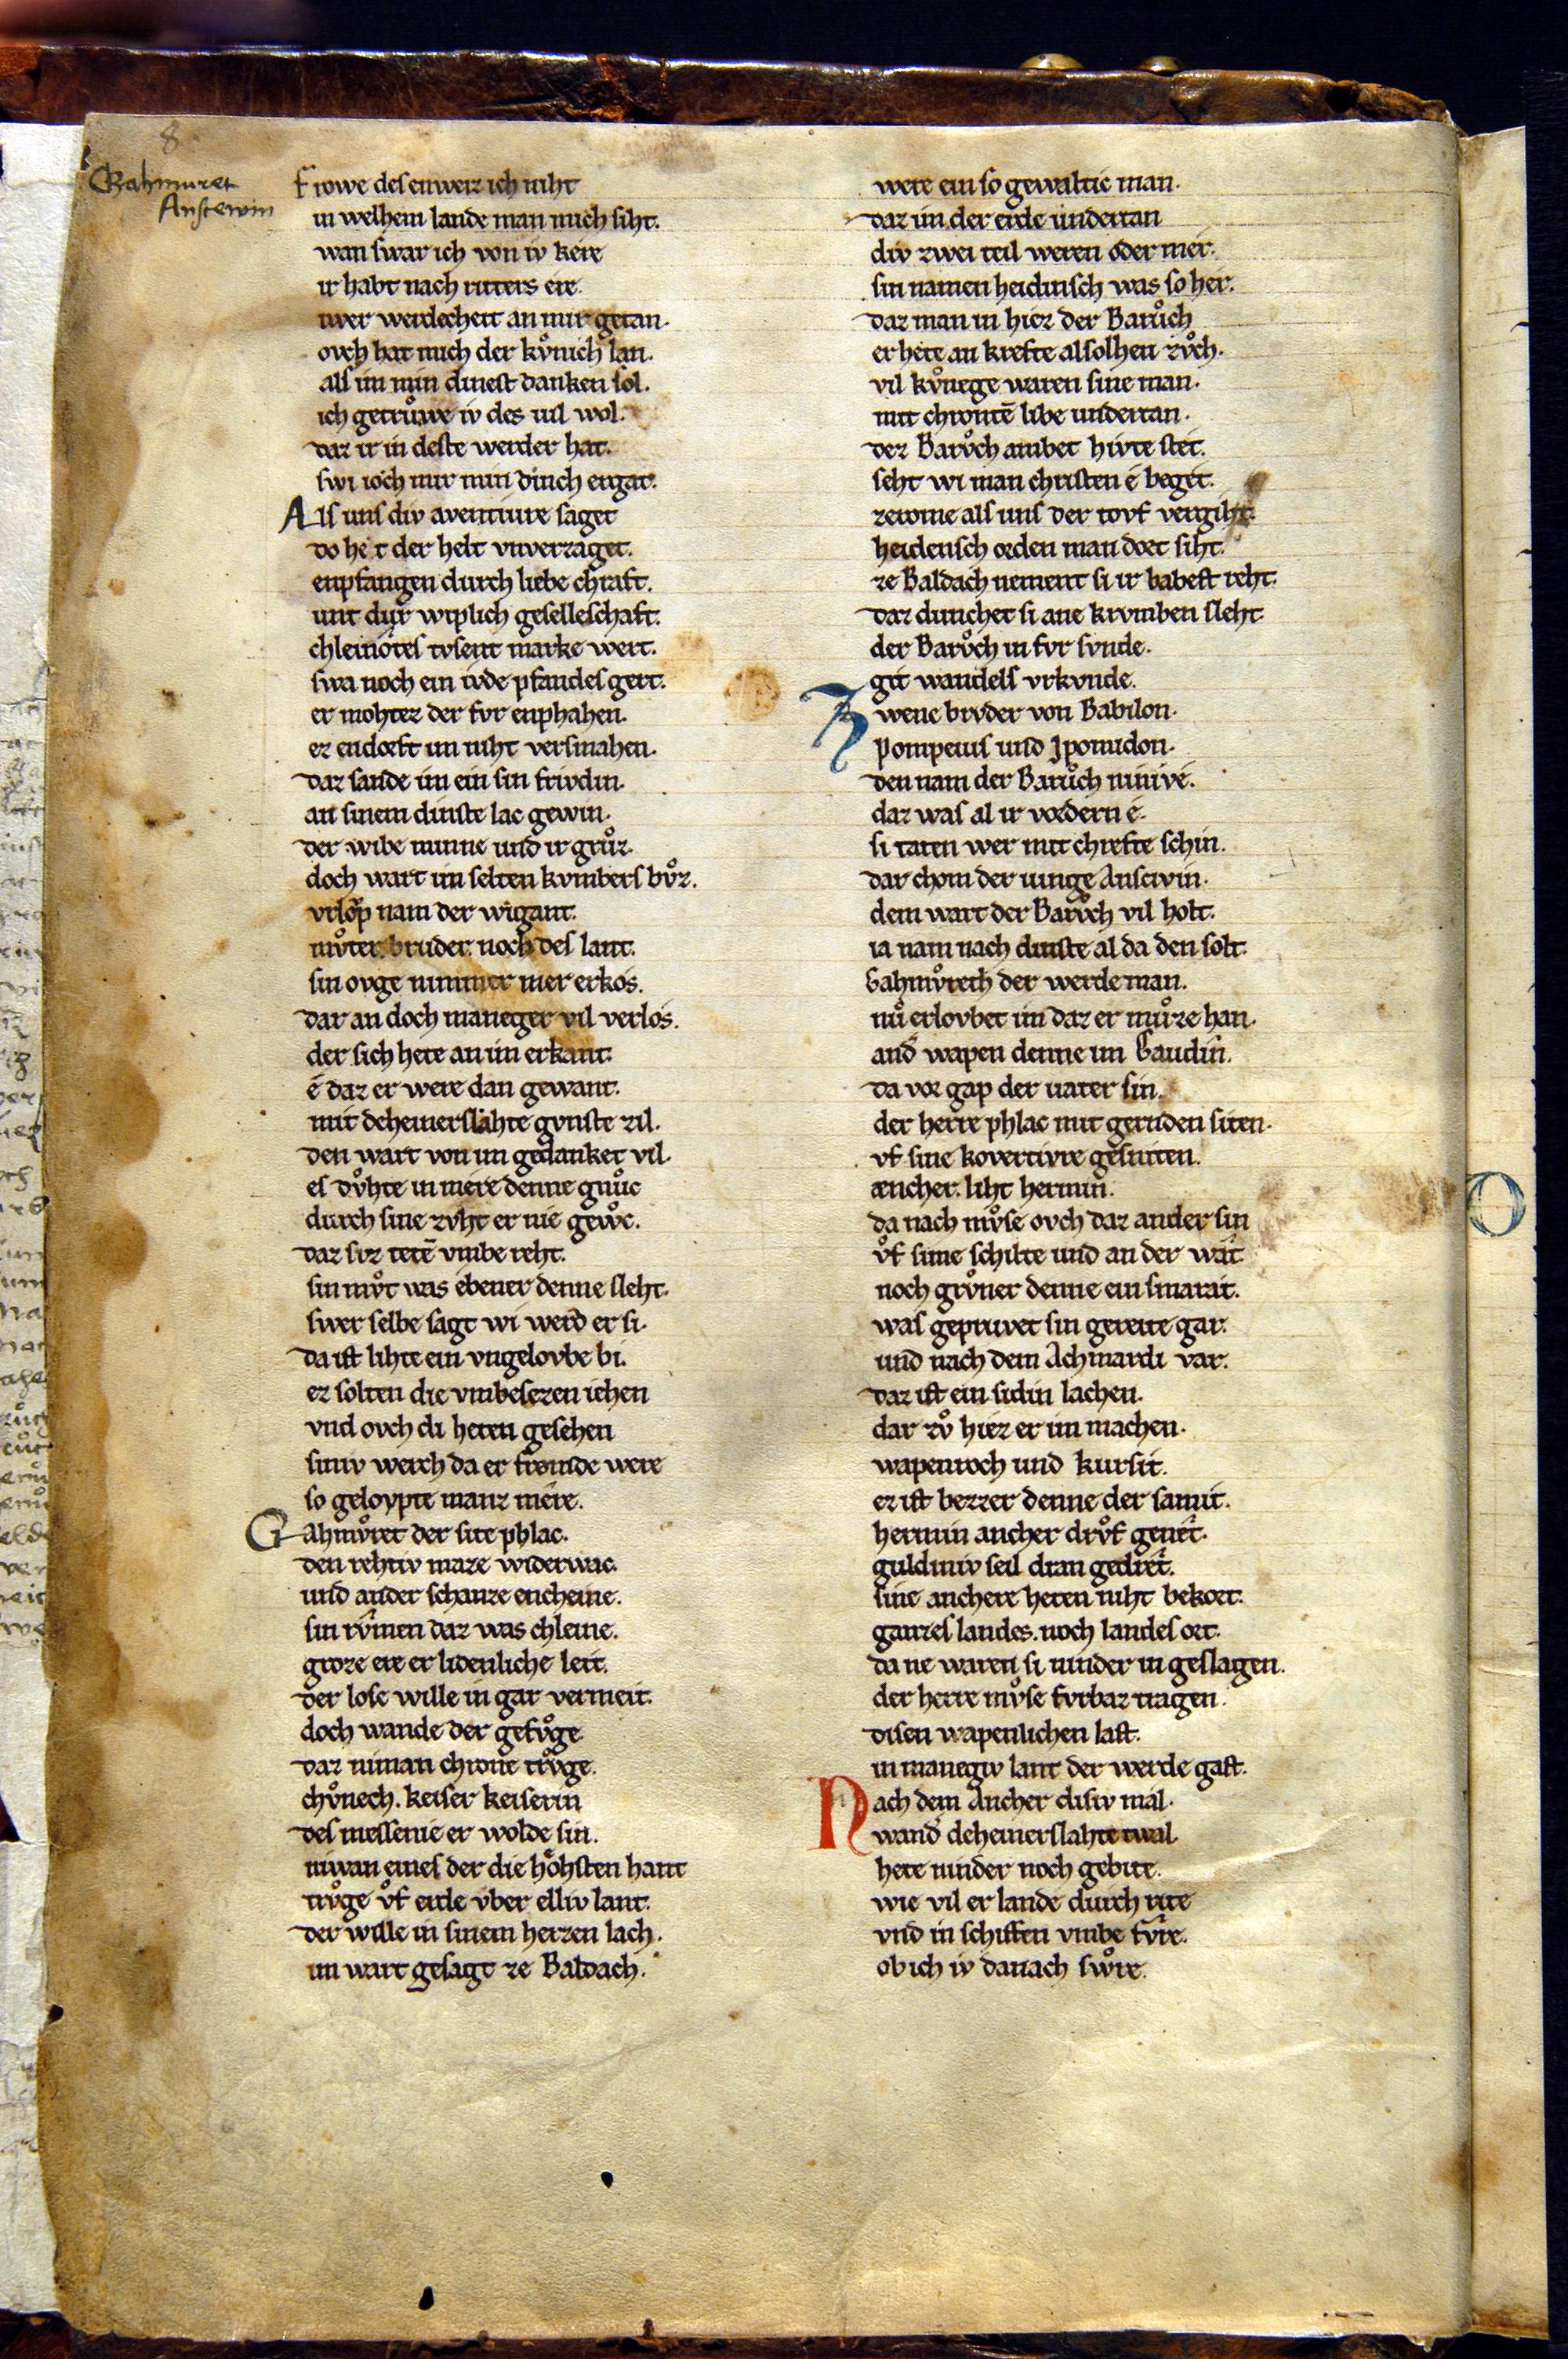 8
Gahmuret
Anscevin
Frowe des enweiz ich niht
in welhem lande man mich siht.
wan swar ich von iv kere
ir habt nach ritters ere
iwer werdecheit an mir getan.
ovch hat mich der kvͦnich lan.
als im min dinest danken sol.
ich getruͦwe iv des vil wol.
daz ir in deste werder hat.
swi ioch mir min dinch ergat.
Als uns div aventiure saget
do het der helt vnverzaget.
enpfangen durch liebe chraft.
unt dur wiplich geselleschaft.
chleinotes tvsent marke wert.
swa noch ein ivde pfandes gert.
er mohtez der fvr enphahen.
ez endorft im niht versmahen.
daz sande im ein sin frivdin.
an sinem dinste lac gewin.
der wibe minne und ir gruͦz.
doch wart im selten kvmbers bvͦz.
vrlop nam der wigant.
mvͦter. bruder. noch des lant.
sin ovge nimmer mer erkos.
dar an doch maneger vil verlos.
der sich hete an im erkant.
é daz er were dan gewant.
mit deheinerslahte gvnste zil.
den wart von im gedanket vil.
es dvͦhte in mere denne gnuͦc
durch sine zvht er nie gewͦc.
daz siz tetē vmbe reht.
sin mvͦt was ebener denne sleht.
swer selbe sagt wi werd er si.
da ist lihte ein vngelovbe bi.
ez solten die vmbesezen iehen
vnd ovch di heten gesehen
siniv werch da er fromde were
so geloypte manz mere.
Gahmvͦret der site phlac.
den rehtiv maze widerwac.
und ander schanze encheine.
sin rvͦmen daz was chleine.
groze ere er lidenliche leit.
der lose wille in gar vermeit.
doch wande der gefvͦge
daz niman chrone trvͦge.
chvͦnech. keiser keiserin
des messenie er wolde sin.
niwan eines der die hohsten hant
trvͦge vͦf erde vber elliv lant.
der wille in sinem herzen lach.
im wart gesagt ze Baldach.
were ein so gewaltic man.
daz im der erde undertan
div zwei teil weren oder mer.
sin namen heidinisch was so her.
daz man in hiez der Baruͦch
er hete an krefte alsolhen zvͦch.
vil kvͦnege waren sine man.
mit chrontē libe undertan.
dez Barvͦch ambet hivte stet.
seht wi man christen é beget.
zerome als uns der tovf vergiht.
heidensch orden man dort siht.
ze Baldach nement si ir babest reht.
daz dunchet si ane krvmben sleht.
der Barvͦch in fvr svnde.
git wandels vrkvnde.
Zwene brvder von Babilon.
Pompeius und Jpomidon.
den nam der Baruͦch ninivé.
daz was al ir vordern é.
si taten wer mit chrefte schin.
dar chom der iunge Anscivin.
dem wart der Barvͦch vil holt.
ia nam nach dinste al da den solt.
Gahmvͦrech der werde man.
nuͦ erlovbet im daz er muͦze han.
and wapen denne im Gandin.
da vor gap der vater sin.
der herre phlac mit gernden siten.
vf sine kovertivre gesniten.
æncher. liht hermin.
da nach mvͦse ovch daz ander sin
vͦf sime schilte und an der wât
noch grvͦner denne ein smarat.
was gepruvet sin gereite gar.
und nach dem Achmardi var.
daz ist ein sidin lachen.
dar zvͦ hiez er im machen.
wapenroch und kursit.
ez ist bezzer denne der samit.
hermin ancher drvͦf genet.
guldiniv seil dran gedret.
sine anchere heten niht bekort.
ganzes landes. noch landes ort.
da ne waren si ninder in geslagen.
der herre mvͦse fvrbaz tragen.
disen wapenlichen last.
in manegiv lant der werde gast.
Nach dem Ancher disiv mal.
wand deheinerslahte twal
hete ninder noch gebite.
wie vil er lande durch rite
vnd in schiffen vmbe fvͦre.
ob ich iv danach swͦre.